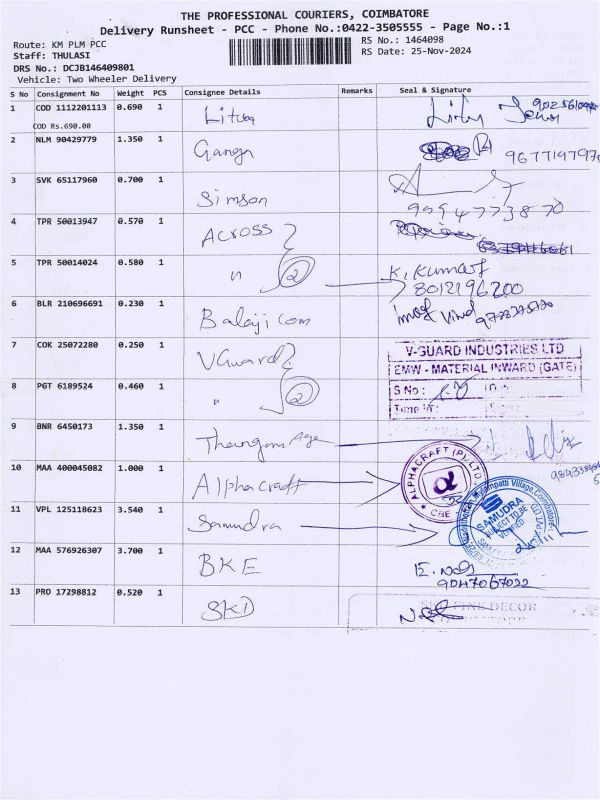 THE PROFESSIONAL COURIERS, COIMBATORE
Delivery Runsheet - PCC - Phone No.:0422-3505555 - Page No.:1
Route: KM PLM PCC
RS No.: 1464098
Staff: THULASI
RS Date: 25-Nov-2024
DRS No.: DCJB146409801
Vehicle: Two Wheeler Delivery
S No Consignment No Weight PCS Consignee Details Remarks Seal & Signature
1 COD 1112201113 0.690 1
COD Rs.690.00
2 NLM 90429779 1.350 1 Ganga
3 SVK 65117960 0.700 1 Simson
4 TPR 50013947 0.570 1 Across
5 TPR 50014024 0.580 1 " 2 K. Kumar
8012196200
6 BLR 210696691 0.230 1 Balaji com
7 COK 25072280 0.250 1 VGuard
V-GUARD INDUSTRIES LTD
EMW - MATERIAL INWARD (GATE)
S No :
Time In :
8 PGT 6189524 0.460 1 " 2
9 BNR 6450173 1.350 1
10 MAA 400045082 1.000 1 Alphacraft
ALPHACRAFT (P) LTD
CBE
11 VPL 125118623 3.540 1 Samundra
SAMUDRA
SUBJECT TO BE
VERIFIED
12 MAA 576926307 3.700 1 BKE
9047067022
13 PRO 17298812 0.520 1 SKD
DECOR